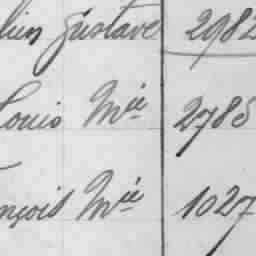 lien Gustave 2982
Louis Mie 2785
nçois Mie 1027